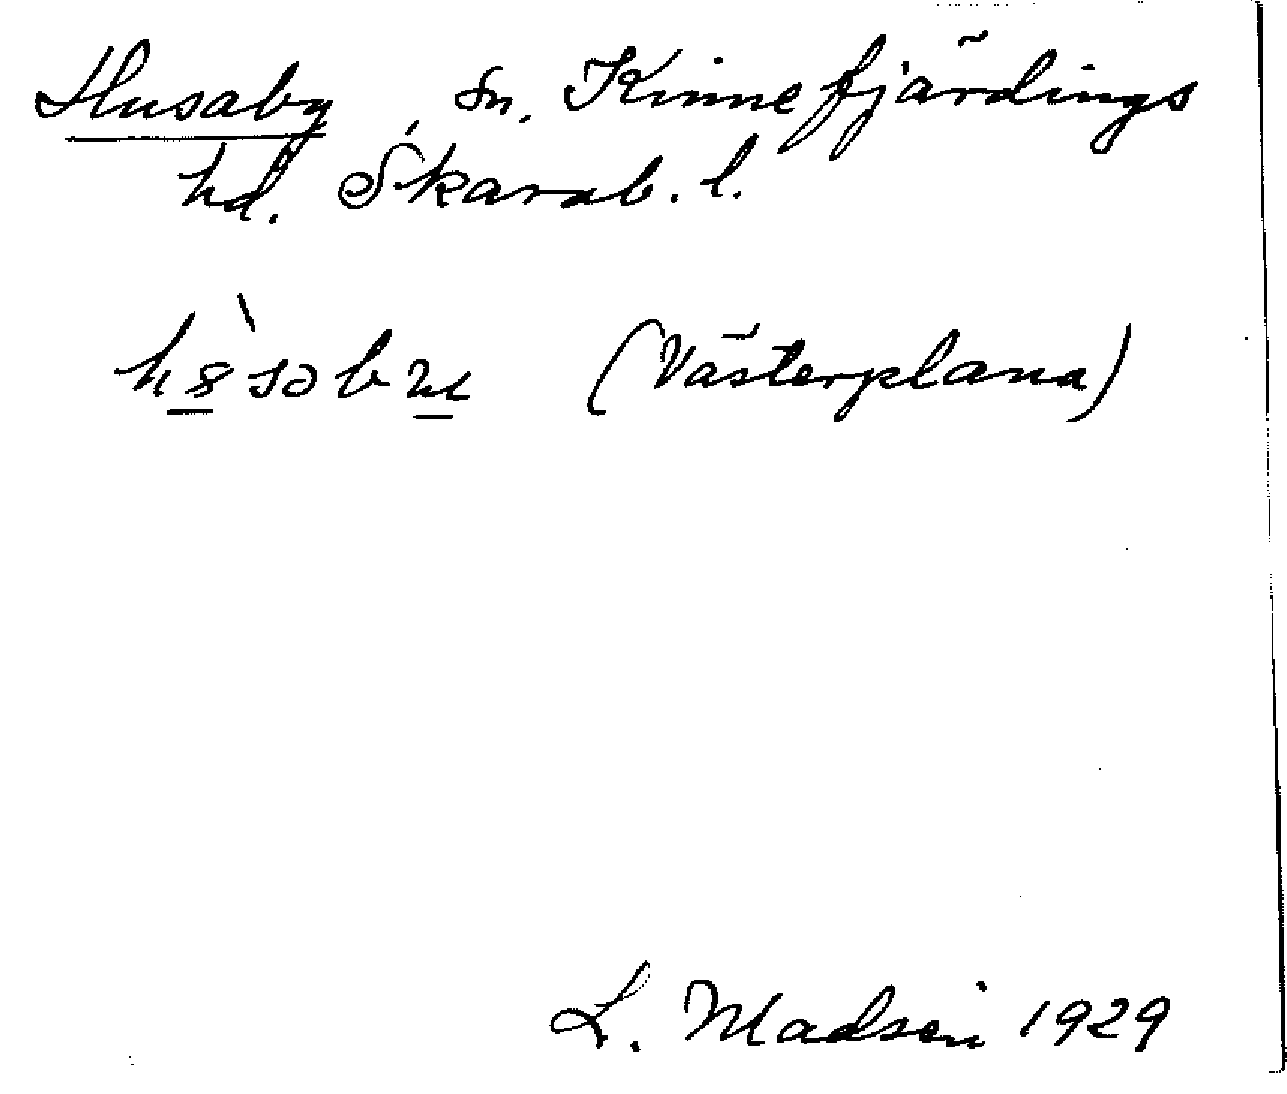 Husaby, sn, Kinnefjärdings
hd. Skarab. l.
(Västerplana)
L. Madsén 1929